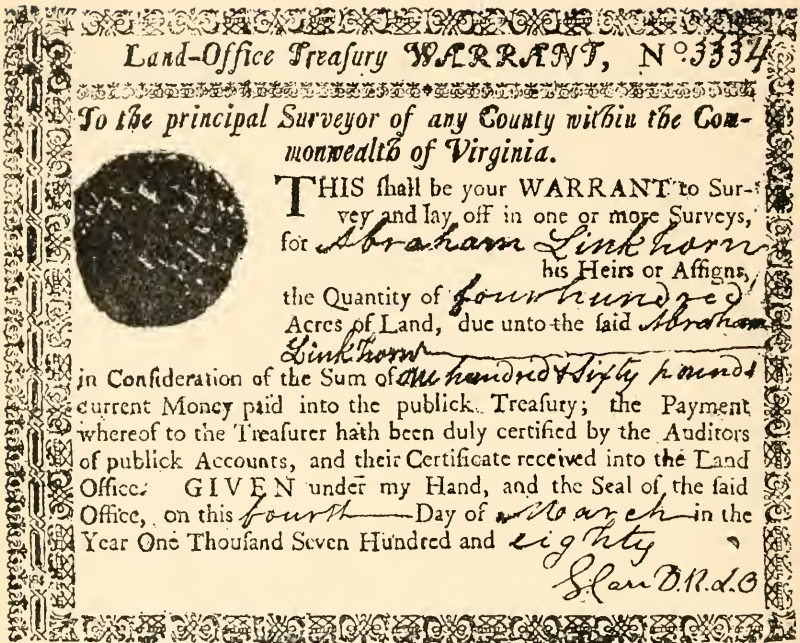 Land-Office Treaſury WARRANT, No. 3334
To the principal Surveyor of any County within the Com-
monwealth of Virginia.
THIS ſhall be your WARRANT to Sur-
vey and lay off in one or more Surveys,
for Abraham Linkhorn
his Heirs or Aſſigns,
the Quantity of four hundred
Acres of Land, due unto the ſaid Abraham
Linkhorn
in Conſideration of the Sum of one hundred & Sixty pounds
current Money paid into the publick Treaſury; the Payment
whereof to the Treaſurer hath been duly certified by the Auditors
of publick Accounts, and their Certificate received into the Land
Office. GIVEN under my Hand, and the Seal of the ſaid
Office, on this fourth Day of March in the
Year One Thouſand Seven Hundred and eighty
S Carr D.R.L.O